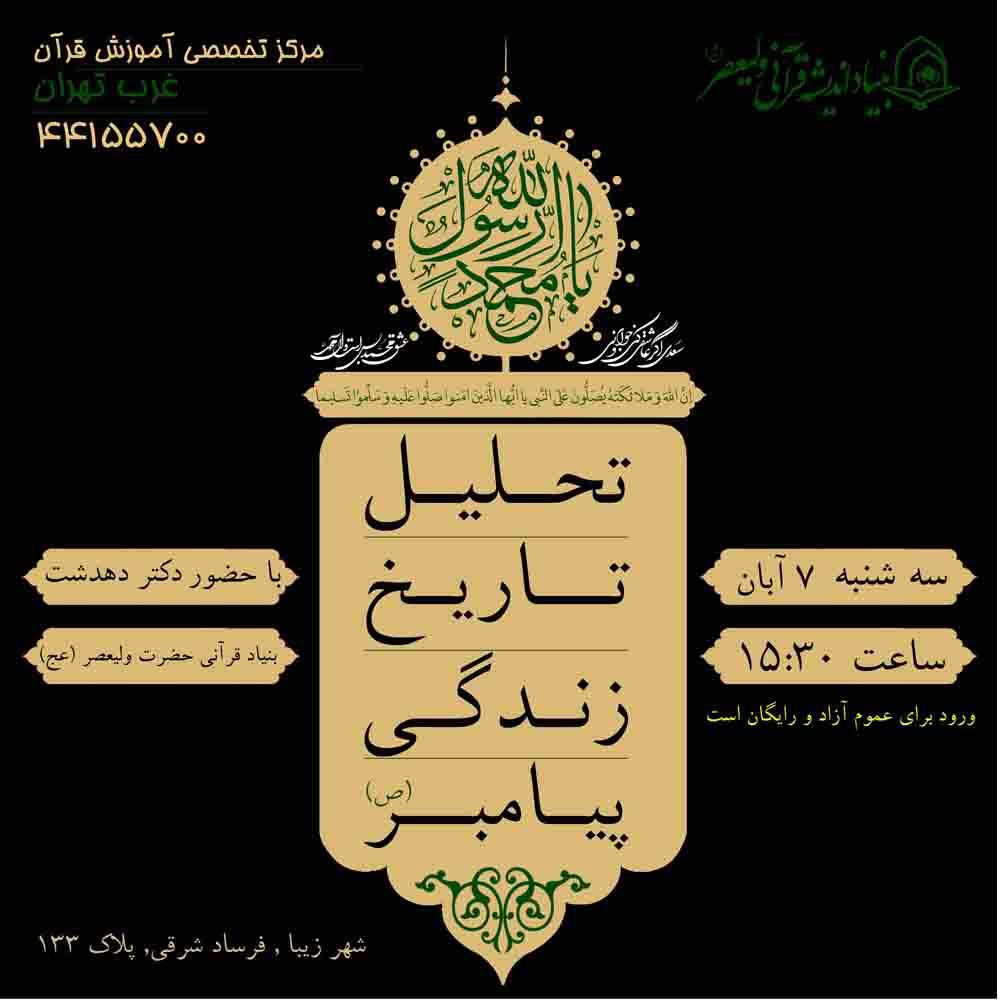 مرکز تخصصی آموزش قرآن
غرب تهران
۴۴۱۵۵۷۰۰
بنیاد اندیشه قرآنی ولیعصر
یا رسول الله
یا محمد
سعدی اگر عاشقی کنی و جوانی
عشق محمد بس است و آل محمد
اِنَّ اللهَ وَ مَلائِکَتَهُ یُصَلُّونَ عَلَی النَّبِی یا اَیُّهَا الَّذینَ امَنوا صَلُّوا عَلَیهِ وَ سَلِّموُا تَسلیما
تحلیل
تاریخ
زندگی
پیامبر (ص)
سه شنبه ۷ آبان
ساعت ۱۵:۳۰
ورود برای عموم آزاد و رایگان است
با حضور دکتر دهدشت
بنیاد قرآنی حضرت ولیعصر (عج)
شهر زیبا , فرساد شرقی, پلاک ۱۳۳